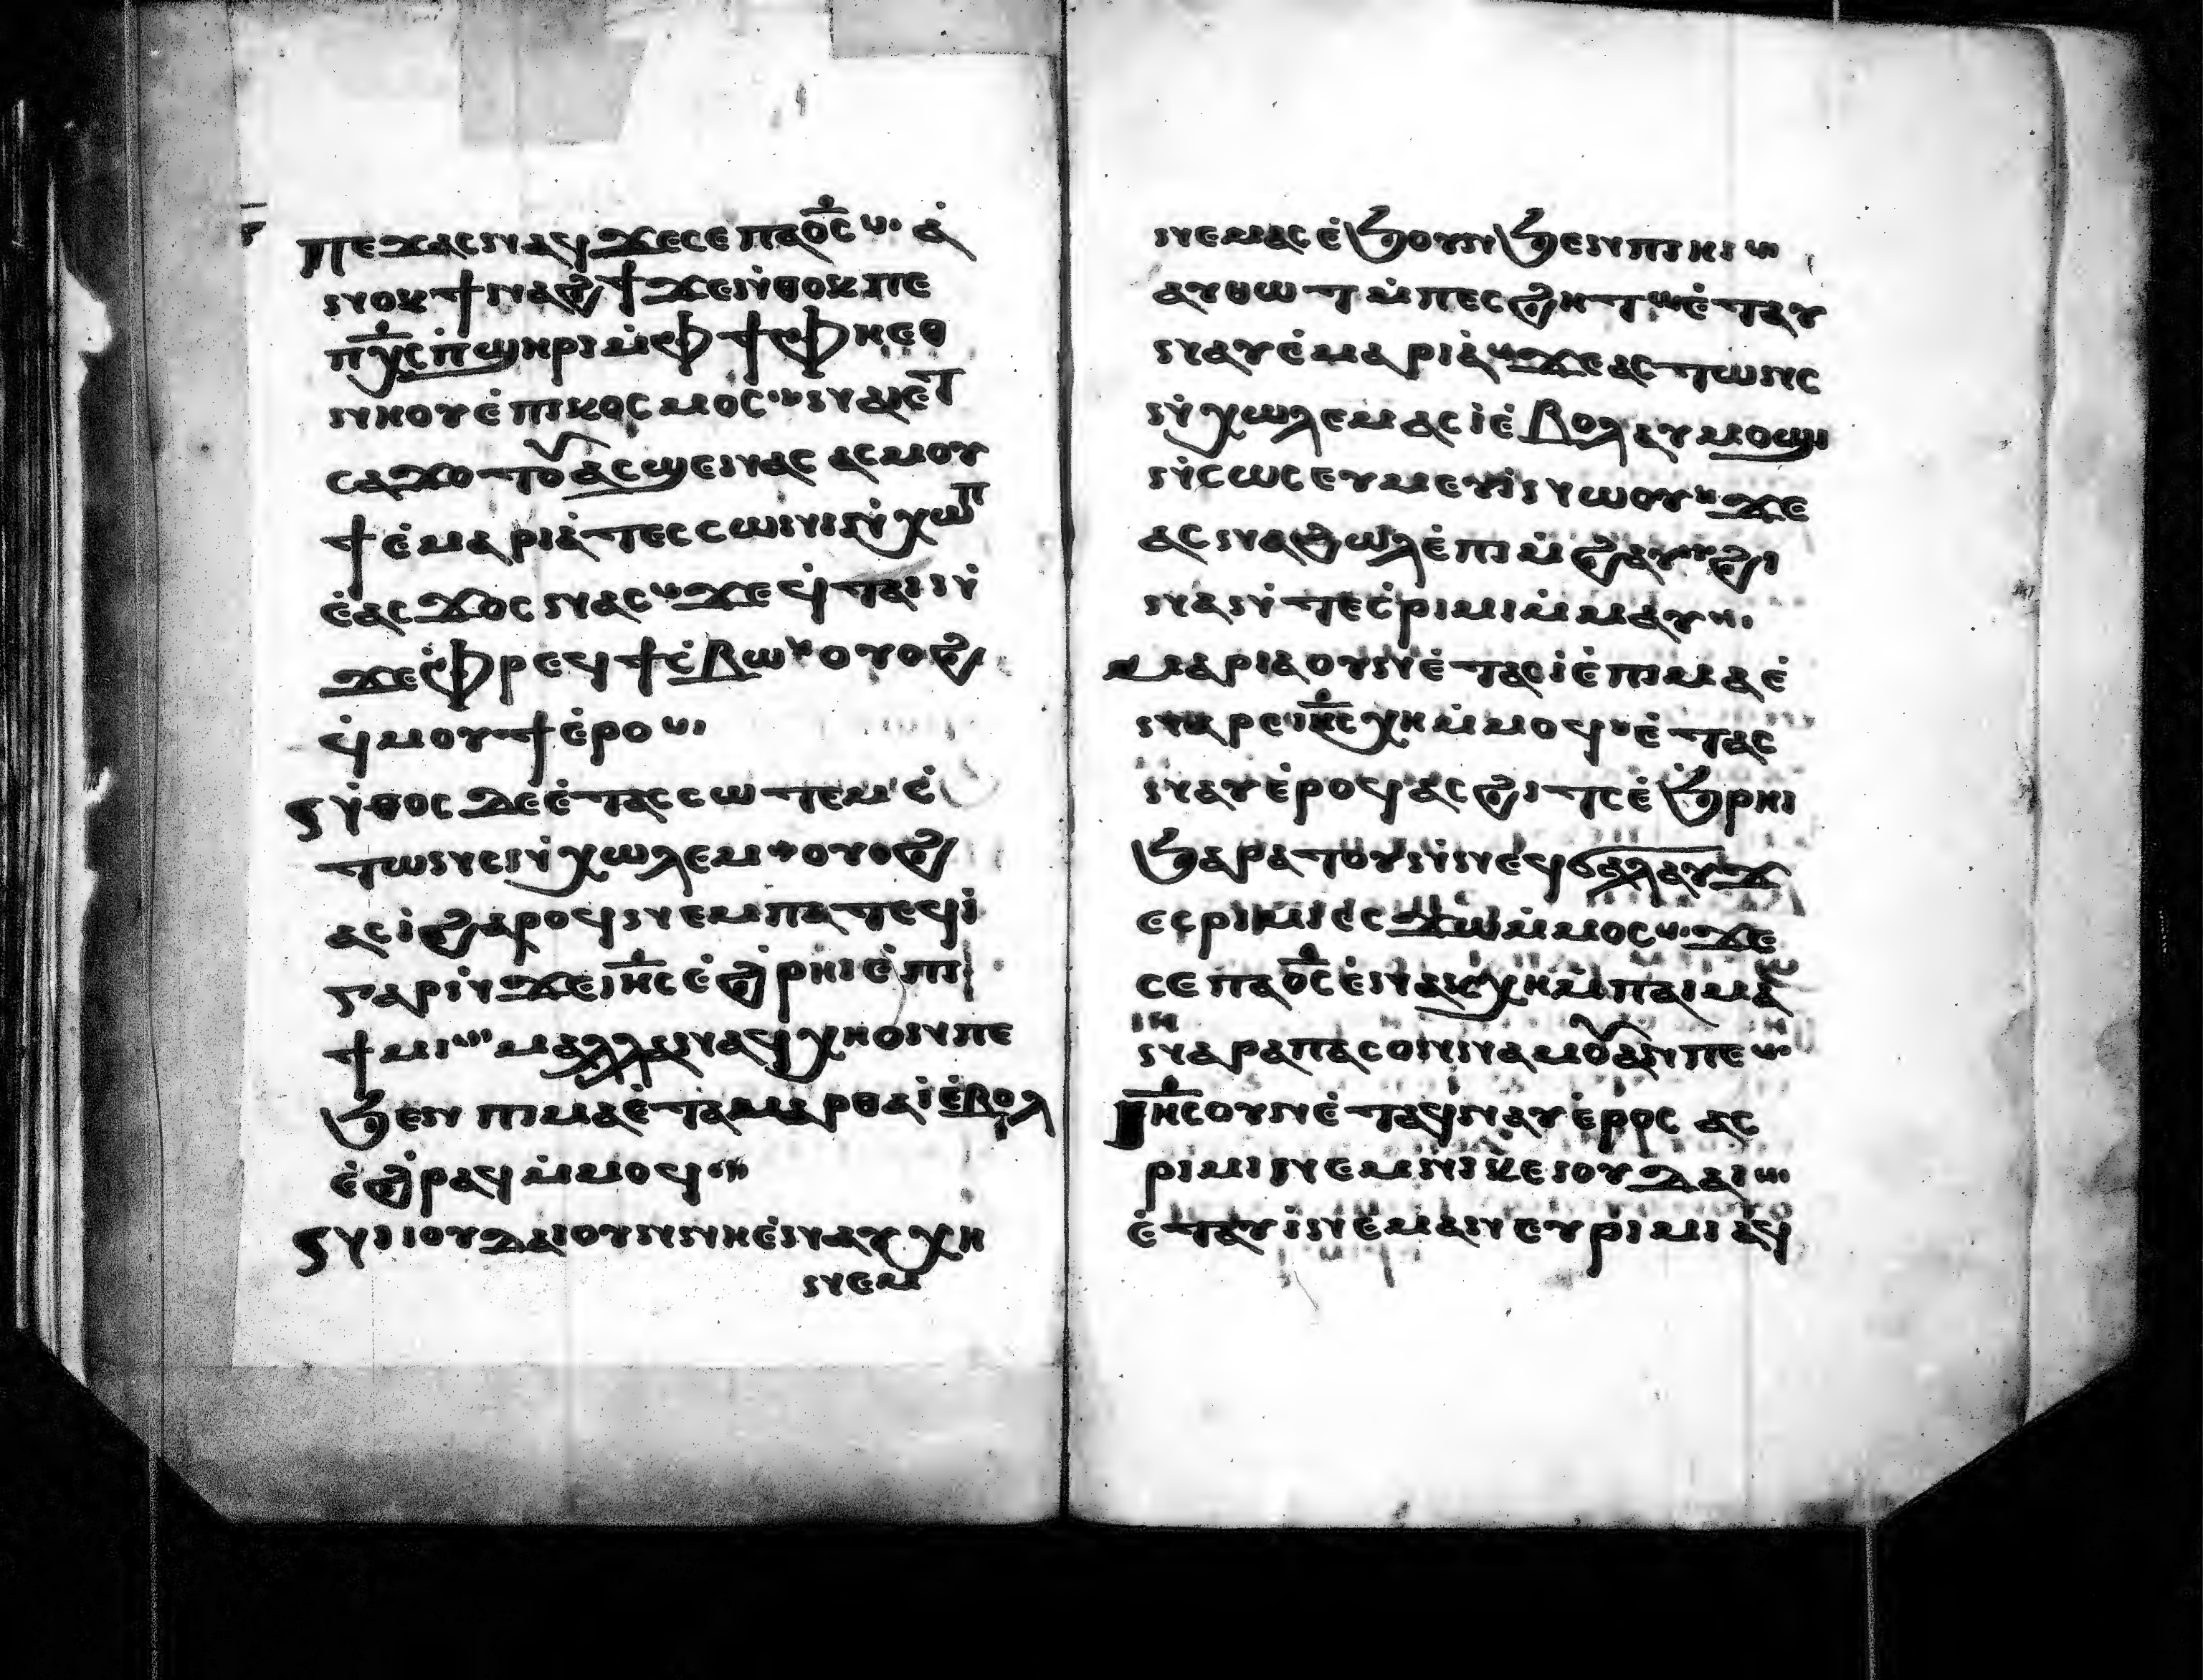 ⲅ̅
ⲡⲉϫⲁⲥ ⲛⲁϥ ϫⲉ ⲥⲉ ⲡⲁ⳪ ⲁ̇
ⲛⲟⲕ ϯⲛⲁϩϯ ϫⲉ ⲛ̇ⲑⲟⲕ ⲡⲉ
ⲡⲭ̅ⲥ ⲡ̇ϣⲏⲣⲓ ⲙ̇ⲫϯ ⲫⲏⲉⲑ
ⲛⲏⲟⲩ ⲉ̇ⲡⲓⲕⲟⲥⲙⲟⲥ ⲛⲁⲓ ⲉⲧ
ⲁⲥϫⲟⲧⲟⲩ ⲁⲥϣⲉⲛⲁⲥ ⲁⲥⲙⲟⲩ
ϯ ⲉ̇ⲙⲁⲣⲓⲁ̇ ⲧⲉⲥⲥⲱⲛⲓ ⲛ̇ⲭⲱⲡ
ⲉ̇ⲁⲥϫⲟⲥ ⲛⲁⲥ ϫⲉ ϥ̇ⲧⲁⲓ ⲛ̇
ϫⲉ ⲫ̇ⲣⲉϥϯⲥ̇ⲃⲱ ⲟⲩⲟϩ
ϥ̇ⲙⲟⲩϯ ⲉ̇ⲣⲟ
ⲛ̇ⲑⲟⲥ ⲇⲉ ⲉ̇ⲧⲁⲥⲥⲱⲧⲉⲙ ⲁⲥ
ⲧⲱⲛⲥ ⲛ̇ⲭⲱⲗⲉⲙ ⲟⲩⲟϩ
ⲁⲥⲓ̇ ϩⲁⲣⲟϥ ⲛⲉⲙⲡⲁⲧⲉϥⲓ̇
ⲅⲁⲣ ⲛ̇ϫⲉ ⲓⲏ̅ⲥ ⲉ̇ϩ̇ⲣⲏⲓ ⲉ̇ⲡⲓ
ϯⲙⲓ ⲙⲁⲗⲗⲁ ⲛⲁϥⲭⲏ ⲟⲛ ⲡⲉ
ϧⲉⲛ ⲡⲓⲙⲁ ⲉ̇ⲧⲁ ⲙⲁⲣⲑⲁ ⲓ̇ ⲉ̇ⲃⲟⲗ
ⲉ̇ϩ̇ⲣⲁϥ ⲙ̇ⲙⲟϥ
ⲛⲓⲓⲟⲩⲇⲁⲓ ⲟⲩⲛ ⲛⲏ ⲉ̇ⲛⲁⲩⲭⲏ
ⲛⲉⲙ
ⲛⲉⲙⲁⲥ ⲉ̇ϧⲟⲩⲛ ϧⲉⲛ ⲡⲓⲏⲓ
ⲁⲩⲑⲱⲧ ⲙ̇ⲡⲉⲥϩⲏⲧ ⲉ̇ⲧⲁⲩ
ⲛⲁⲩ ⲉ̇ⲙⲁⲣⲓⲁ̇ ϫⲉ ⲁⲥⲧⲱⲛⲥ
ⲛ̇ⲭⲱⲗⲉⲙ ⲁⲥⲓ̇ ⲉ̇ⲃⲟⲗ ⲁⲩⲙⲟϣⲓ
ⲛ̇ⲥⲱⲥ ⲉⲩⲙⲉⲩⲓ̇ ⲛⲱⲟⲩ ϫⲉ
ⲁⲥⲛⲁϩⲱⲗ ⲉ̇ⲡⲓⲙ̇ϩⲁⲩ ϩⲓ
ⲛⲁ ⲛ̇ⲧⲉⲥⲣⲓⲙⲓ ⲙ̇ⲙⲁⲩ
ⲙⲁⲣⲓⲁ ⲟⲩⲛ ⲉ̇ⲧⲁⲥⲓ̇ ⲉ̇ⲡⲓⲙⲁ ⲉ̇
ⲛⲁⲣⲉ ⲓⲏ̅ⲥ ⲭⲏ ⲙ̇ⲙⲟϥ ⲉ̇ⲧⲁⲥ
ⲛⲁⲩ ⲉ̇ⲣⲟϥ ⲁⲥϩⲓⲧⲥ ⲉ̇ϧ̇ⲣⲏⲓ
ϧⲁⲣⲁⲧⲟⲩ ⲛ̇ⲛⲉϥϭⲁⲗⲁⲩϫ
ⲉⲥⲣⲓⲙⲓ ⲉⲥϫⲱ ⲙ̇ⲙⲟⲥ ϫⲉ
ⲥⲉ ⲡⲁ⳪ ⲉ̇ⲛⲁⲕⲭⲏ ⲙ̇ⲡⲁⲓⲙⲁ
ⲛⲁⲣⲁⲡⲁⲥⲟⲛ ⲛⲁⲙⲟⲩ ⲁⲛ ⲡⲉ
ⲓⲏ̅ⲥ ⲟⲩⲛ ⲉ̇ⲧⲁϥⲛⲁⲩ ⲉ̇ⲣⲟⲥ ⲁⲥ
ⲣⲓⲙⲓ ⲛⲉⲙ ⲛⲓⲕⲉⲓⲟⲩⲇⲁⲓ
ⲉ̇ⲧⲁⲩⲓ̇ ⲛⲉⲙⲁⲥ ⲉⲩⲣⲓⲙⲓ ⲁϥ